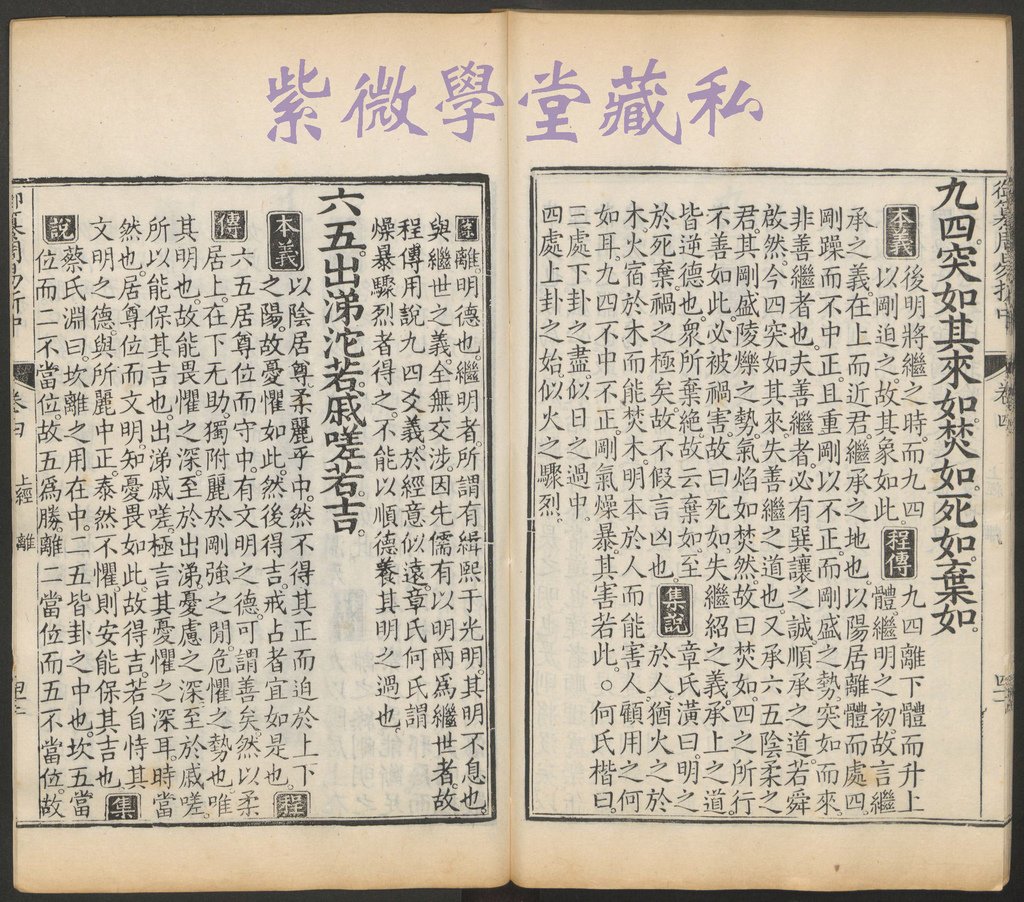 紫微學堂藏私
九四突如其來如焚如死如棄如。
本義 後明將繼之時而九四以剛迫之故其象如此。
程傳 九四離下體而升上體繼明之初故言繼
承之義在上而近君繼承之地也。以陽居離體而處四。
剛躁而不中正且重剛以不正而剛盛之勢突如而來。
非善繼者也。夫善繼者必有巽讓之誠順承之道若舜
啟然。今四突如其來。失善繼之道也。又承六五陰柔之
君。其剛盛陵爍之勢。氣焰如焚然。故曰焚如。四之所行
不善如此。必被禍害。故曰死如。失繼紹之義。承上之道。
皆逆德也。衆所棄絕。故云棄如。至
於死棄。禍之極矣。故不假言凶也。
集說 章氏潢曰。明之
於人。猶火之於
木。火宿於木而能焚木。明本於人而能害人。顧用之何
如耳。九四不中不正。剛氣燥暴。其害若此。○何氏楷曰。
三處下卦之盡。似日之過中。
四處上卦之始。似火之驟烈。
卷四
案 離。明德也。繼明者。所謂有緝熙于光明。其明不息也。
與繼世之義。全無交涉。因先儒有以明兩爲繼世者。故
程傳用說九四爻義。於經意似遠。章氏何氏謂
燥暴驟烈者得之。不能以順德養其明之過也。
六五。出涕沱若。戚嗟若。吉。
本義 以陰居尊。柔麗乎中。然不得其正而迫於上下
之陽。故憂懼如此。然後得吉。戒占者宜如是也。程
傳 六五居尊位而守中。有文明之德。可謂善矣。然以柔
居上。在下无助。獨附麗於剛強之閒。危懼之勢也。唯
其明也。故能畏懼之深。至於出涕。憂慮之深。至於戚嗟。
所以能保其吉也。出涕戚嗟。極言其憂懼之深耳。時當
然也。居尊位而文明。知憂畏如此。故得吉。若自恃其
文明之德。與所麗中正。泰然不懼。則安能保其吉也。集
說 蔡氏淵曰。坎離之用在中。二五皆卦之中也。坎五當
位而二不當位。故五爲勝。離二當位而五不當位。故
卷四 上經 離